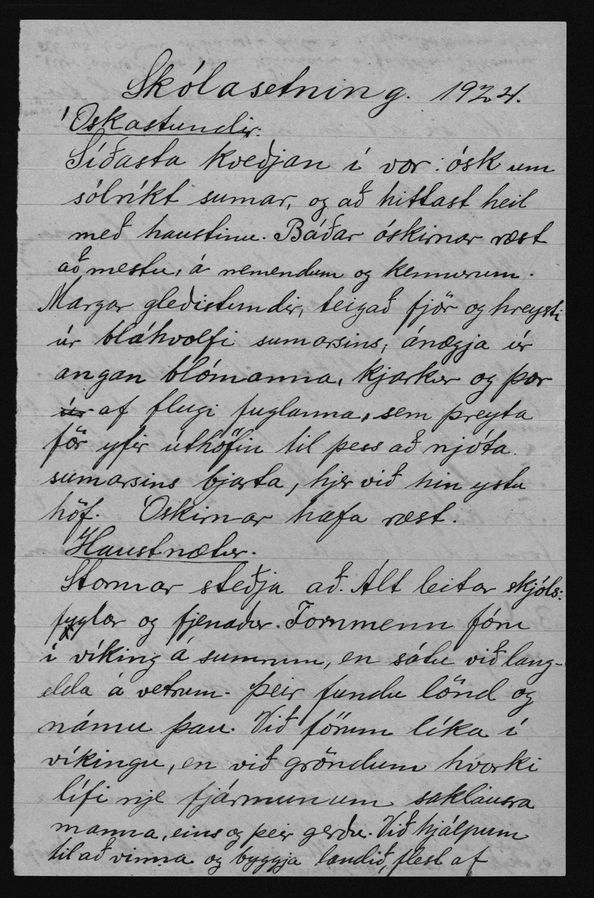 Skólasetning. 1924.
Óskastundir.
Síðasta kveðjan í vor: ósk um
sólríkt sumar, og að hittast heil
með haustinu. Báðar óskirnar ræst
að mestu, á nemendum og kennurum.
Margar gleðistundir, teigað fjör og hreysti
úr bláhvolfi sumarsins, ánægja úr
angan blómanna, kjarkur og þor
úr af flugi fuglanna, sem þreyta
för yfir úthöfin til þess að njóta
sumarsins bjarta, hjer við hin ystu
höf. Óskirnar hafa ræst.
Haustnætur.
Stormar steðja að. Alt leitar skjóls:
fuglar og fjenaður. Fornmenn fóru
í víking á sumrum, en sátu við lang-
elda á vetrum. Þeir fundu lönd og
námu þau. Við förum líka í
víkingu, en við gröndum hvorki
lífi nje fjármunum saklausra
manna, eins og þeir gerðu. Við hjálpum
til að vinna og byggja landið, flest af